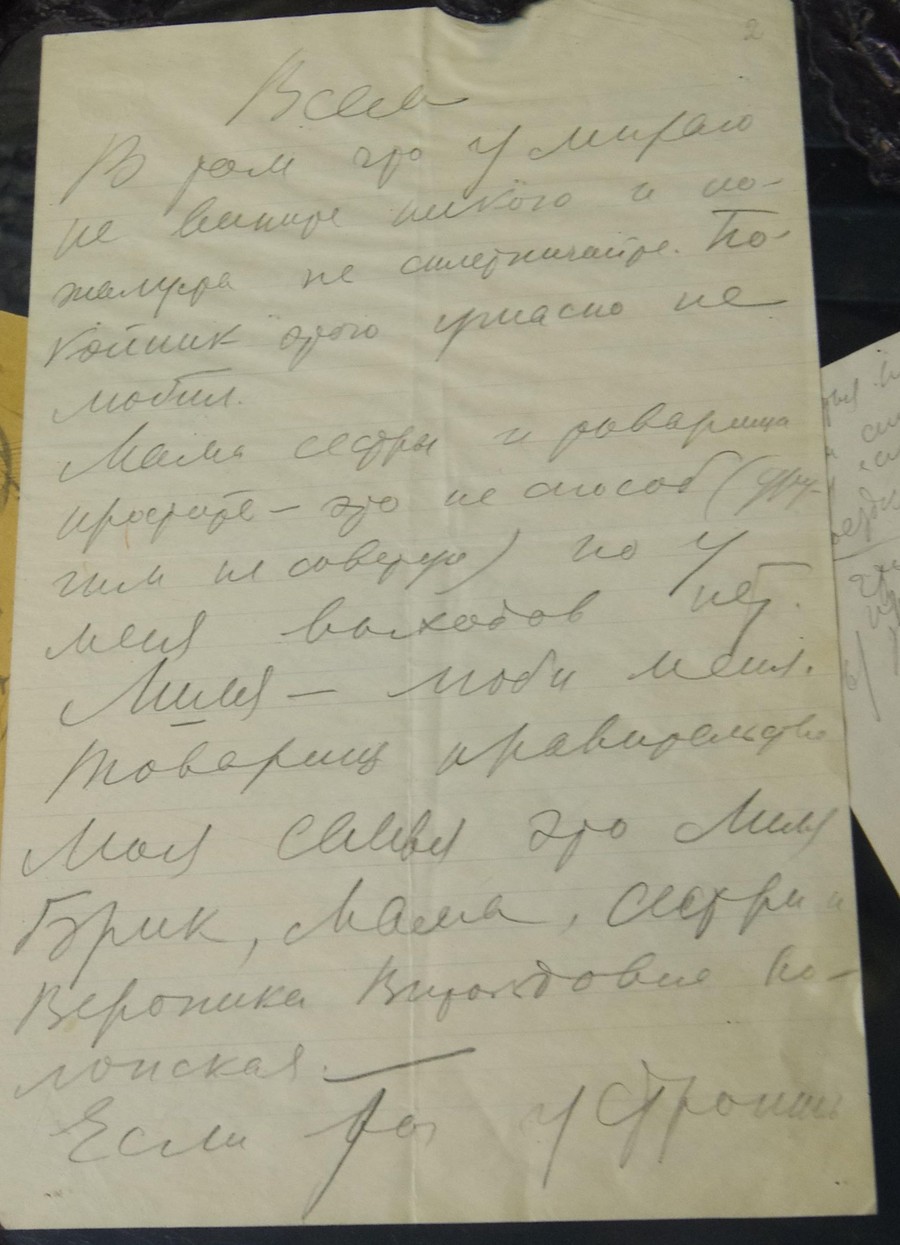 2
Всем
В том что умираю
не вините никого и по-
жалуста не сплетничайте. По-
койник этого ужасно не
любил.
Мама сестры и товарищи
простите — это не способ (дру-
гим не советую) но у
меня выходов нет.
Лиля — люби меня.
Товарищ правительство
моя семья это Лиля
Брик, мама, сестры и
Вероника Витольдовна По-
лонская. —
Если ты устроишь